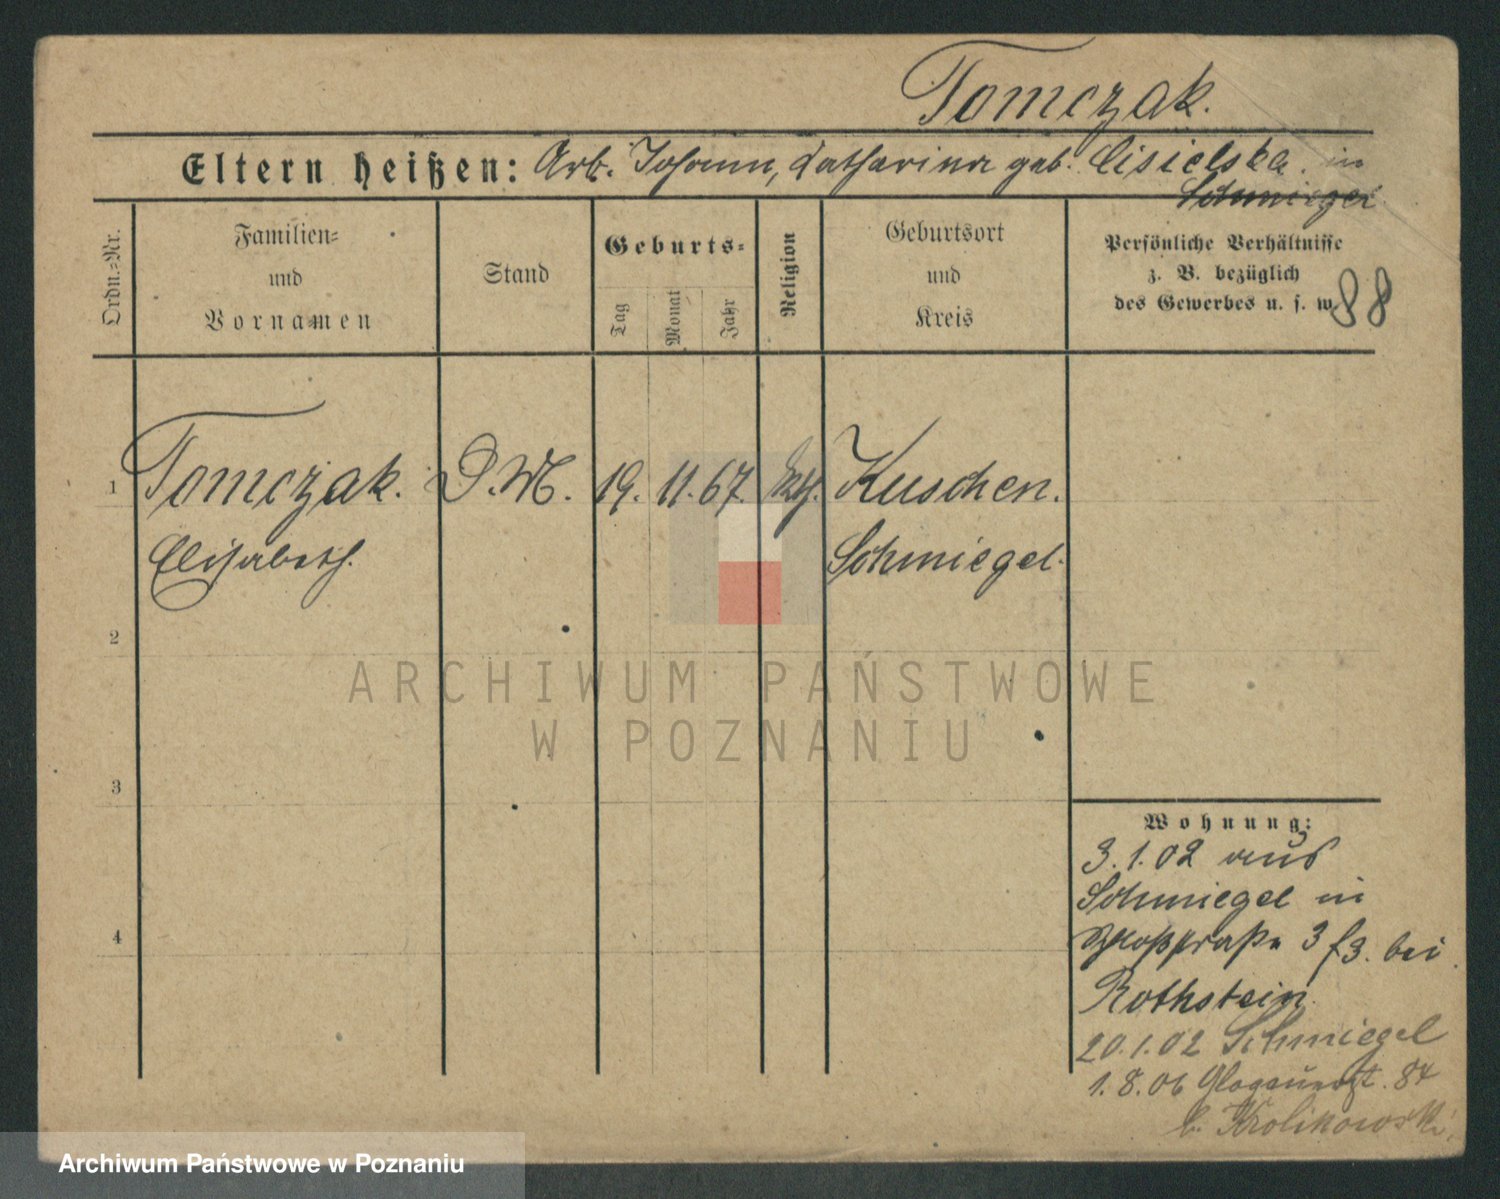 Tomczak.
Eltern heißen: Arb. Johann, Katharina geb. Cisielska. in
Schmiegel
Ordn.=Nr.
Familien=
und
Vornamen
Stand
Geburts=
Tag
Monat
Jahr
Religion
Geburtsort
und
Kreis
Persönliche Verhältnisse
z. B. bezüglich
des Gewerbes u. s. w.
88
1 Tomczak. D.M. 19. 11. 67. kth. Kuschen.
Elisabeth. Schmiegel.
2
3
4
ARCHIWUM PAŃSTWOWE
W POZNANIU
Wohnung:
3.1.02 aus
Schmiegel in
3 f3. bei
Rothstein
20.1.02 Schmiegel
1.8.06 Glogauerst. 84
b. Krolikowski
Archiwum Państwowe w Poznaniu